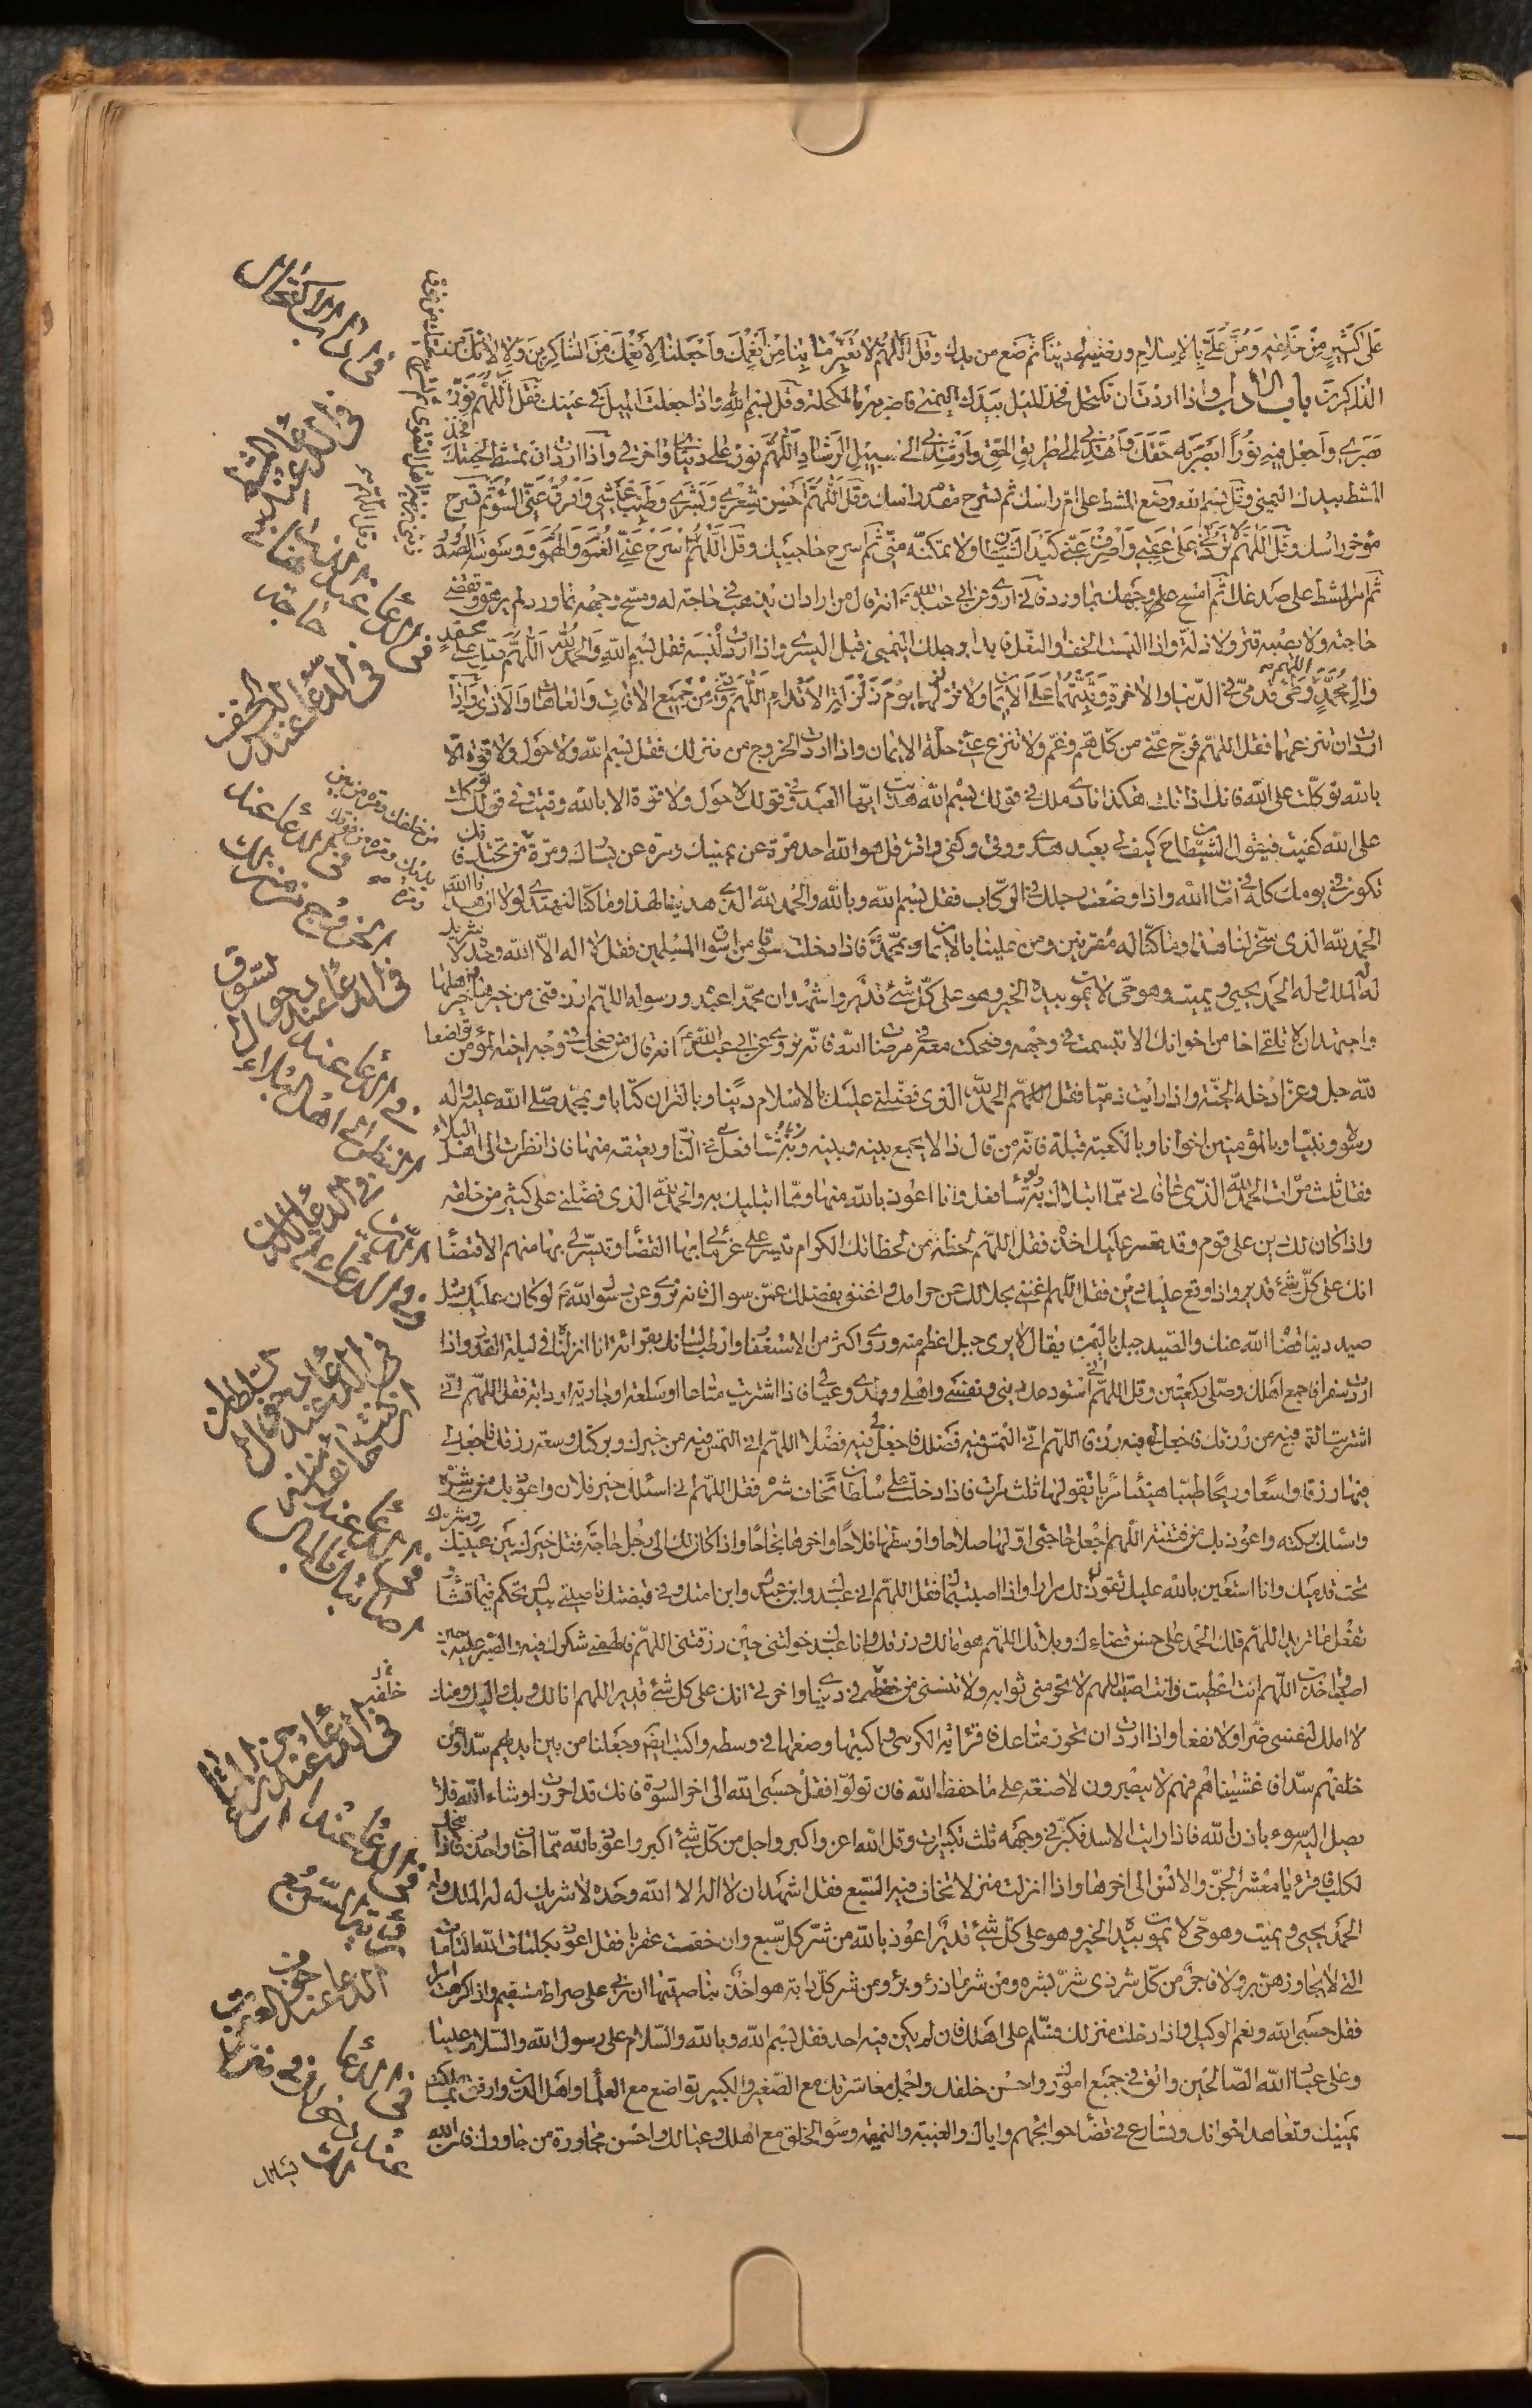 على كثير من خلقه ومن علي بالاسلام ورضيه لي دينا ثم ضع من يدك وقل اللهم لا تغير ما بنا من انعمك واجعلنا لانعمك من الشاكرين ولالائك من
الذاكرين باب الاداب واذا اردت ان تكتحل فخذ الميل بيدك اليمنى فاضربه بالمكحلة وقل بسم الله واذا جعلت الميل في عينك فقل اللهم نور
بصري واجعل فيه نورا ابصر به حقك واهدني الى طريق الحق وارشدني الى سبيل الرشاد اللهم نور علي دنياي واخرتي واذا اردت ان تمشط لحيتك فخذ
المشط بيدك اليمنى وقل بسم الله وضع المشط على ام راسك ثم تسرح مقدم راسك وقل اللهم احسن شعري وبشري وطيب عيشي وافرق عني السوء ثم تسرح
مؤخر راسك وقل اللهم لا تردني على عقبي واصرف عني كيد الشيطان ولا تمكنه مني ثم اسرح حاجبيك وقل اللهم سرح عني الغموم والهموم ووسوسة الصدور
ثم امر المشط على صدغك ثم امسح على وجهك بماورد فاني اروى عن ابي عبد الله انه قال من اراد ان يذهب في حاجة له ومسح وجهه بماورد لم يرهق وتقضى
حاجته ولا يصيبه قتر ولا ذلة واذا لبست الخف او النعل فابدا برجلك اليمنى قبل اليسرى واذا اردت لبسه فقل بسم الله والحمد لله اللهم صل على محمد
وال محمد ووطئ قدمي في الدنيا والاخرة وثبتهما على الايمان ولا تزلزلهما يوم زلزلة الاقدام اللهم وقني من جميع الافات والعاهات والاذى واذا
اردت ان تنزعهما فقل اللهم فرج عني من كل هم وغم ولا تنزع عني حلة الايمان واذا اردت الخروج من منزلك فقل بسم الله ولا حول ولا قوة الا
بالله توكلت على الله فانك اذا قلت هكذا نادى ملك في قولك بسم الله هديت ايها العبد وفي قولك لا حول ولا قوة الا بالله وقيت وفي قولك توكلت
على الله كفيت فيقول الشيطان ح كيف لي بعبد هدي ووقي وكفي واقرء قل هو الله احد مرة عن يمينك ومرة عن يسارك ومرة من تحتك
تكون في يومك كله في امان الله واذا وضعت رجلك في الركاب فقل بسم الله وبالله والحمد لله الذي هدينا لهذا وما كنا لنهتدي لولا ان هدانا الله
الحمد لله الذي سخر لنا هذا وما كنا له مقرنين ومن علينا بالايمان وبمحمد فاذا دخلت سوقا من اسواق المسلمين فقل لا اله الا الله وحده لا شريك
له له الملك وله الحمد يحيي ويميت وهو حي لا يموت بيده الخير وهو على كل شئ قدير واشهد ان محمدا عبده ورسوله اللهم ارزقني من خيرها وخير اهلها
واجتهد ان لا تلقى اخا من اخوانك الا تبسمت في وجهه وضحكت معه في مرضات الله فانه نروي عن ابي عبد الله انه قال من ضحك في وجه اخيه المؤمن تواضعا
لله جل وعز ادخله الجنة واذا رايت ذميا فقل اللهم الحمد لله الذي فضلني عليك بالاسلام دينا وبالقران كتابا وبمحمد صلى الله عليه واله
رسولا ونبيا وبالمؤمنين اخوانا وبالكعبة قبلة فانه من قال ذا لا يجمع بينه وبينه في النار ويعتقه منها فاذا نظرت الى اهل البلاء
فقل ثلث مرات الحمد لله الذي عافاني مما ابتلاك به ولو شاء فعل وانا اعوذ بالله منها ومما ابتليك به والحمد لله الذي فضلني على كثير من خلقه
واذا كان لك دين على قوم وقد تعسر عليك اخذه فقل اللهم لحظة من لحظاتك الكرام تيسر علي غرمائي بها القضاء وتيسر لي بها منهم الاقتضاء
انك على كل شئ قدير واذا وقع عليك دين فقل اللهم اغنني بحلالك عن حرامك واغنني بفضلك عمن سواك فانه نروي عن رسول الله لو كان عليك مثل
صيد دينا قضاه الله عنك والصيد جبل باليمن يقال لا يرى جبل اعظم منه وروى اكثر من الاستغفار وارطب لسانك بقرائة انا انزلناه في ليلة القدر واذا
اردت سفرا فاجمع اهلك وصلي ركعتين وقل اللهم اني استودعك ديني ونفسي واهلي وولدي وعيالي فاذا اشتريت متاعا او سلعة او جارية او دابة فقل اللهم اني
اشتريت التمس فيه من رزقك فاجعل لي فيه رزقا اللهم اني التمس فيه فضلك فاجعل لي فيه فضلا اللهم اني التمس فيه من خيرك وبركتك وسعة رزقك فاجعل لي
فيها رزقا واسعا وربحا طيبا هنيئا مريئا تقولها ثلث مرات فاذا دخلت على سلطان تخاف شره فقل اللهم اني اسئلك خير فلان واعوذ بك من شره
واسئلك بركته واعوذ بك من فتنته اللهم اجعل حاجتي اولها صلاحا واوسطها فلاحا واخرها نجاحا واذا كان لك الى رجل حاجة فقل خيرك بين عينيك وشرك
تحت قدميك وانا استعين بالله عليك تقول ذلك مرارا واذا اصبت بمال فقل اللهم اني عبدك وابن عبدك وابن امتك وفي قبضتك ناصيتي بيدك تحكم فيما تشاء
تفعل ما تريد اللهم فلك الحمد على حسن قضاءك وبلائك اللهم هو مالك ورزقك وانا عبدك خولتني حين رزقتني اللهم فالهمني شكرك فيه والصبر عليه حين
اصبت واخذت اللهم انت اعطيت وانت اصبت اللهم لا تحرمني ثوابه ولا تنسني من خلفه في دنياي واخرتي انك على كل شئ قدير اللهم انا لك وبك واليك ومنك
لا املك لنفسي ضرا ولا نفعا واذا اردت ان تحرز متاعك فاقرء اية الكرسي واكتبها وضعها في وسطه واكتب ايضا وجعلنا من بين ايديهم سدا ومن
خلفهم سدا فاغشيناهم فهم لا يبصرون لا ضيعة على ما حفظه الله فان تولوا فقل حسبي الله الى اخر السورة فانك قد احرزت انشاء الله فلا
يصل اليه سوء باذن الله فاذا رايت الاسد فكبر في وجهه ثلث تكبيرات وقل الله اعز واكبر واجل من كل شئ اكبر واعوذ بالله مما اخاف واحذر فاذا
لكلب فاقرء يا معشر الجن والانس الى اخرها واذا نزلت منزلا تخاف فيه السبع فقل اشهد ان لا اله الا الله وحده لا شريك له له الملك وله
الحمد يحيي ويميت وهو حي لا يموت بيده الخير وهو على كل شئ قدير اعوذ بالله من شر كل سبع وان خفت عقربا فقل اعوذ بكلمات الله التامات
التي لا يجاوزهن بر ولا فاجر من كل شر ذي شر بشره ومن شر ما ذرء وبرء ومن شر كل دابة هو اخذ بناصيتها ان ربي على صراط مستقيم واذا كرهت امرا
فقل حسبي الله ونعم الوكيل واذا دخلت منزلك فسلم على اهلك فان لم يكن فيه احد فقل بسم الله وبالله والسلام على رسول الله والسلام علينا
وعلى عباد الله الصالحين واتق في جميع امورك واحسن خلقك واجمل معاشرتك مع الصغير والكبير وتواضع مع العلماء واهل الدين وارفق بما ملكت
يمينك وتعاهد اخوانك وتسارع في قضاء حوائجهم واياك والغيبة والنميمة وسوء الخلق مع اهلك وعيالك واحسن مجاورة من جاورك فان الله
في الدعاء عند المشط
في الدعاء عند
حاجته
في الدعاء عند لبس الخف
في الدعاء عند
الخروج من منزلك
في الدعاء عند دخول السوق
في الدعاء عند
النظر الى اهل البلاء
في الدعاء عند دخول السلطان
في الدعاء عند
اصابتك بالمال
في الدعاء عند
الدعاء عند خوف العقرب
يسالك